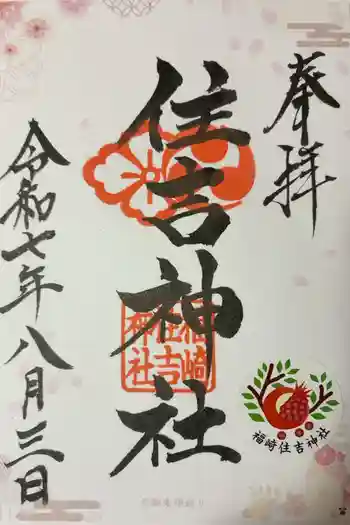 奉拝
住吉神社
福崎
住吉
神社
令和七年八月三日
福崎住吉神社